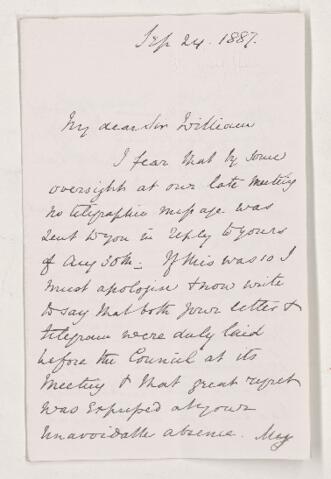 Sep 24. 1887.
My dear Sir William
I fear that by some
oversight at our late Meeting
no telegraphic message was
sent to you in reply to yours
of Aug 30th. If this was so I
must apologise & now write
to say that both your letter &
telegram were duly laid
before the Council at its
Meeting & that great regret
was expressed at your
unavoidable absence. May